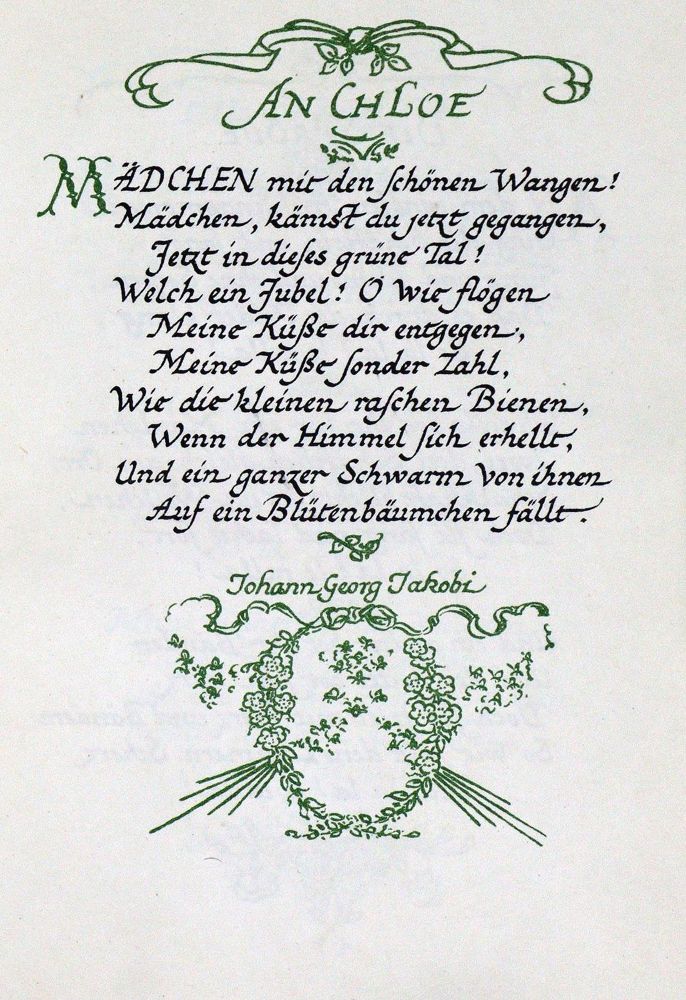 AN CHLOE
MÄDCHEN mit den schönen Wangen!
Mädchen, kämst du jetzt gegangen,
Jetzt in dieses grüne Tal!
Welch ein Jubel! O wie flögen
Meine Küße dir entgegen,
Meine Küße sonder Zahl,
Wie die kleinen raschen Bienen,
Wenn der Himmel sich erhellt,
Und ein ganzer Schwarm von ihnen
Auf ein Blütenbäumchen fällt.
Johann Georg Jakobi